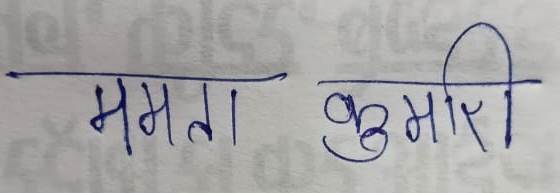 ममता कुमारी